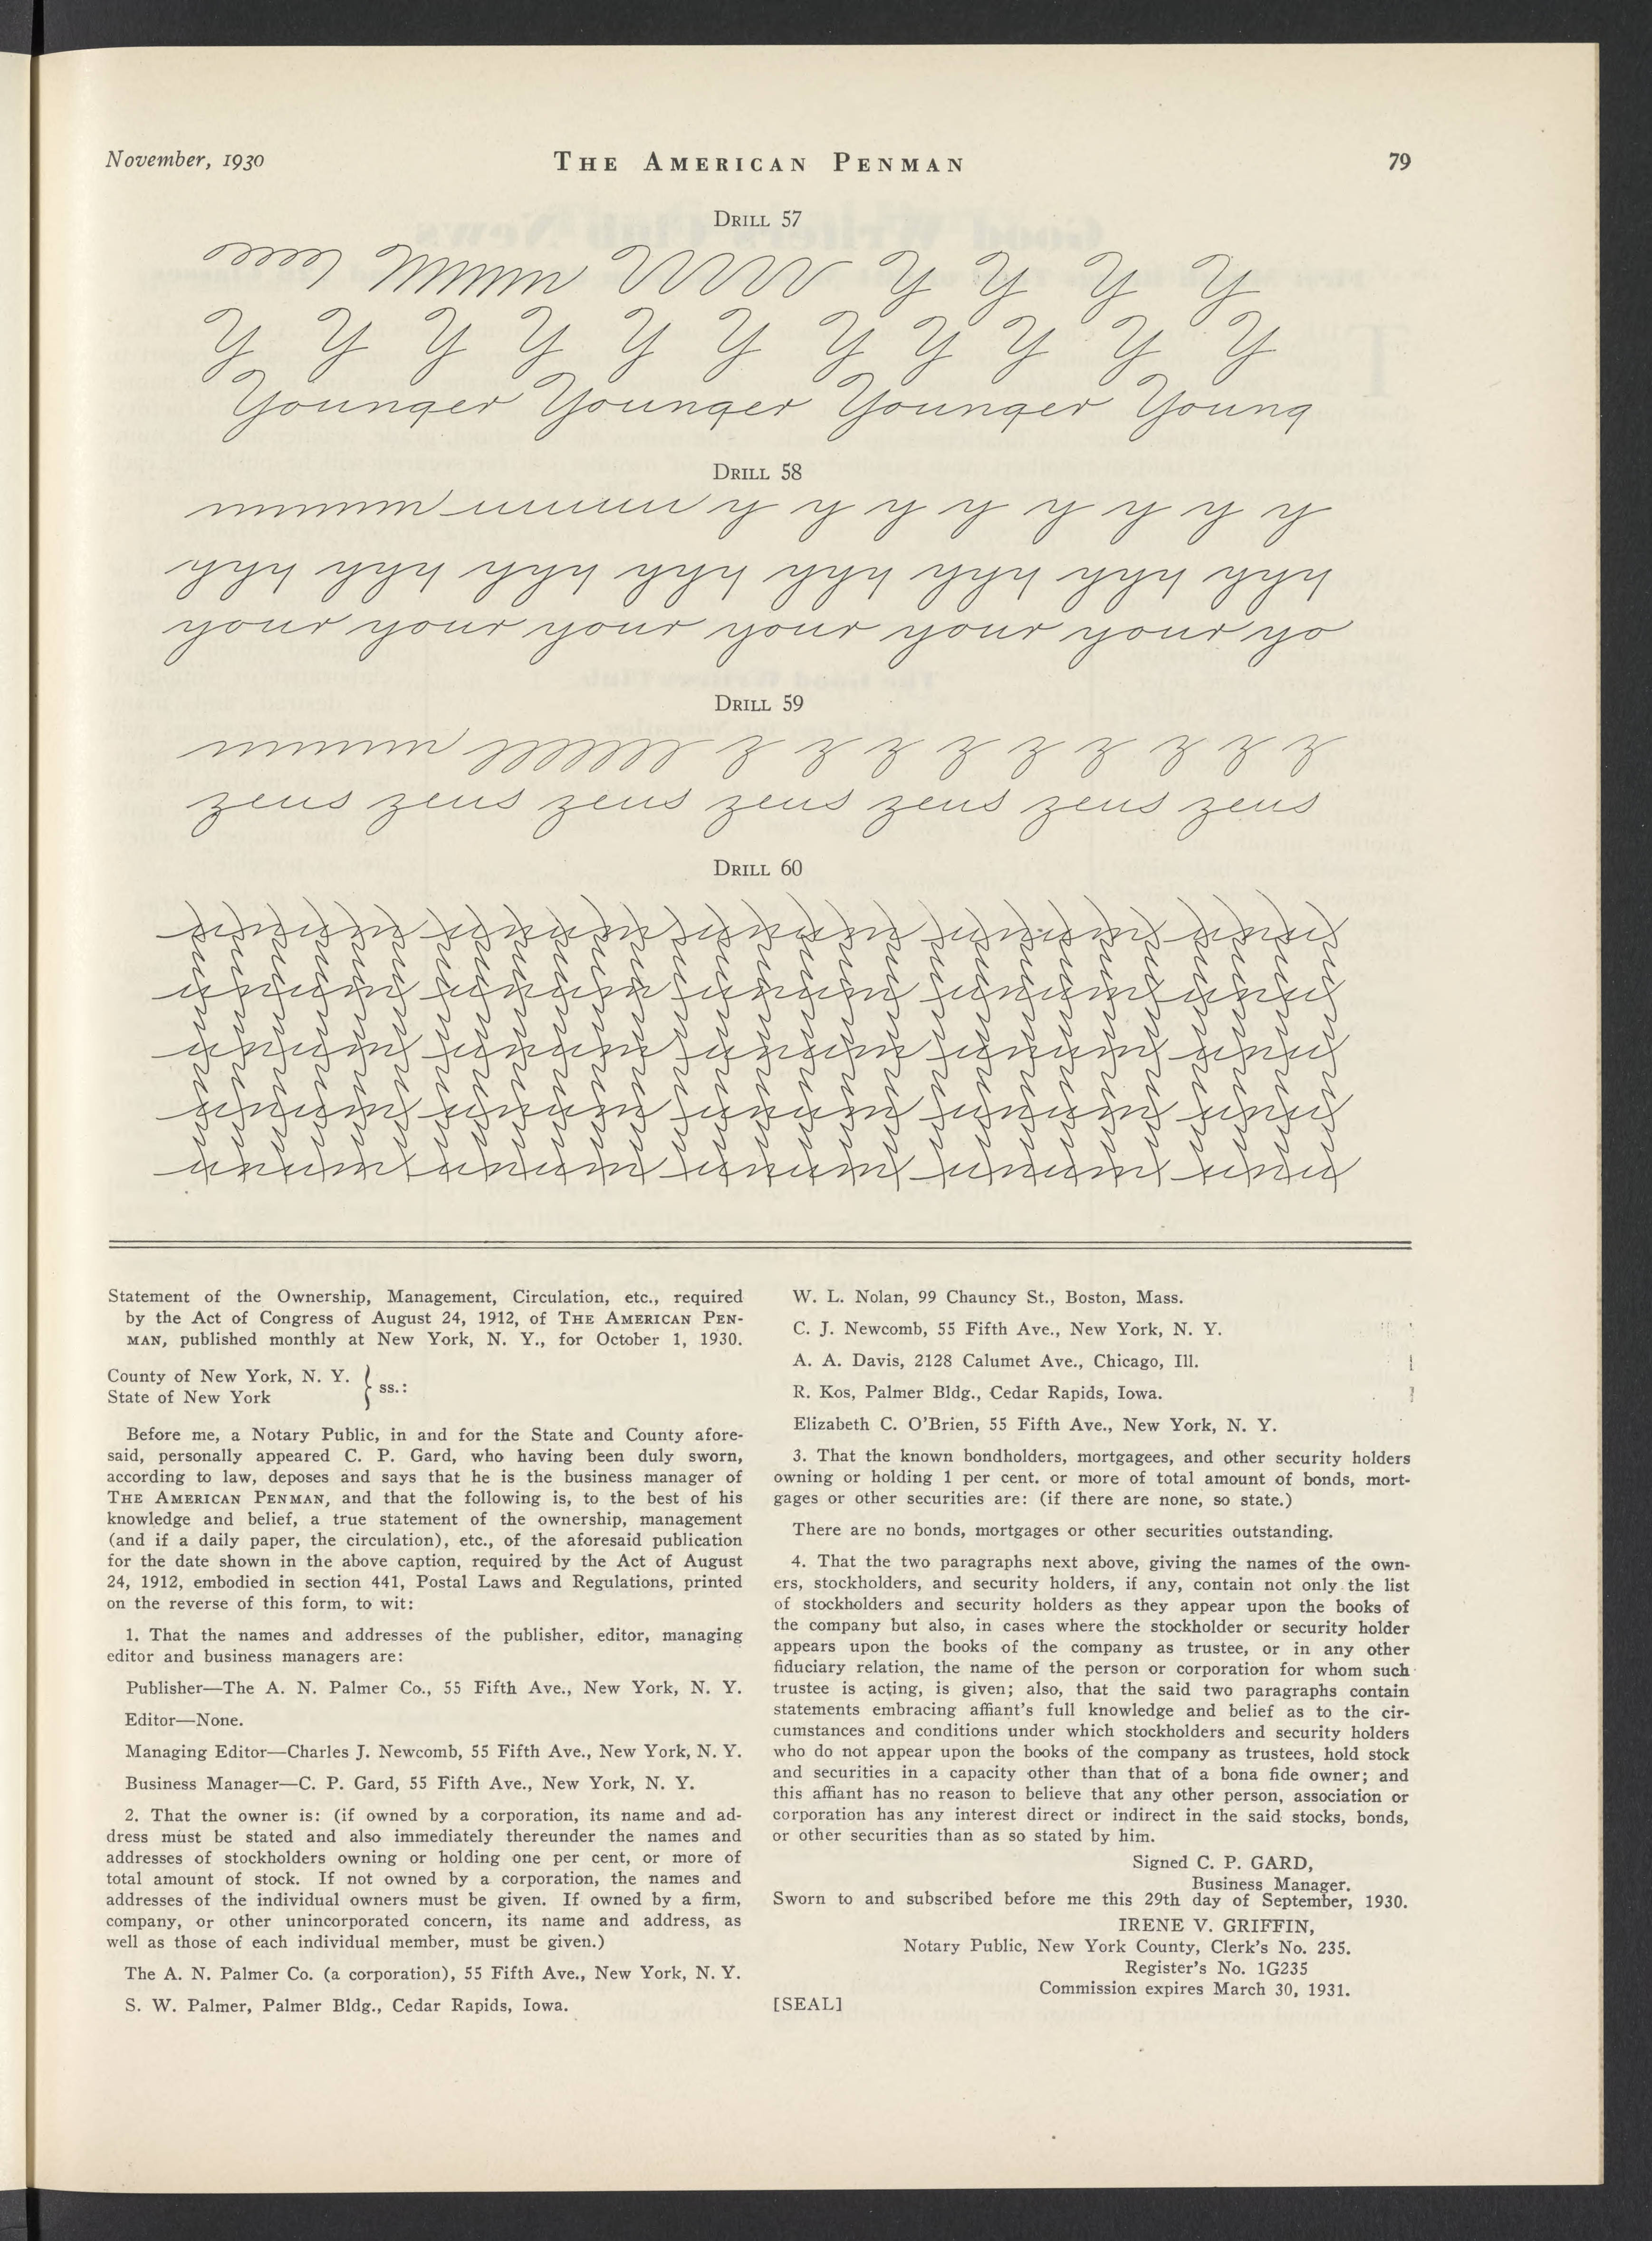 November, 1930
THE AMERICAN PENMAN
79
DRILL 57
Y Y Y Y
Y Y Y Y Y Y Y Y Y Y Y
Younger Younger Younger Young
DRILL 58
y y y y y y y y
yyy yyy yyy yyy yyy yyy yyy yyy
your your your your your your yo
DRILL 59
z z z z z z z z z
zeus zeus zeus zeus zeus zeus zeus
DRILL 60
Statement of the Ownership, Management, Circulation, etc., required
by the Act of Congress of August 24, 1912, of THE AMERICAN PEN-
MAN, published monthly at New York, N. Y., for October 1, 1930.
County of New York, N. Y.
State of New York
ss.:
Before me, a Notary Public, in and for the State and County afore-
said, personally appeared C. P. Gard, who having been duly sworn,
according to law, deposes and says that he is the business manager of
THE AMERICAN PENMAN, and that the following is, to the best of his
knowledge and belief, a true statement of the ownership, management
(and if a daily paper, the circulation), etc., of the aforesaid publication
for the date shown in the above caption, required by the Act of August
24, 1912, embodied in section 441, Postal Laws and Regulations, printed
on the reverse of this form, to wit:
1. That the names and addresses of the publisher, editor, managing
editor and business managers are:
Publisher—The A. N. Palmer Co., 55 Fifth Ave., New York, N. Y.
Editor—None.
Managing Editor—Charles J. Newcomb, 55 Fifth Ave., New York, N. Y.
Business Manager—C. P. Gard, 55 Fifth Ave., New York, N. Y.
2. That the owner is: (if owned by a corporation, its name and ad-
dress must be stated and also immediately thereunder the names and
addresses of stockholders owning or holding one per cent, or more of
total amount of stock. If not owned by a corporation, the names and
addresses of the individual owners must be given. If owned by a firm,
company, or other unincorporated concern, its name and address, as
well as those of each individual member, must be given.)
The A. N. Palmer Co. (a corporation), 55 Fifth Ave., New York, N. Y.
S. W. Palmer, Palmer Bldg., Cedar Rapids, Iowa.
W. L. Nolan, 99 Chauncy St., Boston, Mass.
C. J. Newcomb, 55 Fifth Ave., New York, N. Y.
A. A. Davis, 2128 Calumet Ave., Chicago, Ill.
R. Kos, Palmer Bldg., Cedar Rapids, Iowa.
Elizabeth C. O'Brien, 55 Fifth Ave., New York, N. Y.
3. That the known bondholders, mortgagees, and other security holders
owning or holding 1 per cent. or more of total amount of bonds, mort-
gages or other securities are: (if there are none, so state.)
There are no bonds, mortgages or other securities outstanding.
4. That the two paragraphs next above, giving the names of the own-
ers, stockholders, and security holders, if any, contain not only the list
of stockholders and security holders as they appear upon the books of
the company but also, in cases where the stockholder or security holder
appears upon the books of the company as trustee, or in any other
fiduciary relation, the name of the person or corporation for whom such
trustee is acting, is given; also, that the said two paragraphs contain
statements embracing affiant's full knowledge and belief as to the cir-
cumstances and conditions under which stockholders and security holders
who do not appear upon the books of the company as trustees, hold stock
and securities in a capacity other than that of a bona fide owner; and
this affiant has no reason to believe that any other person, association or
corporation has any interest direct or indirect in the said stocks, bonds,
or other securities than as so stated by him.
Signed C. P. GARD,
Business Manager.
Sworn to and subscribed before me this 29th day of September, 1930.
IRENE V. GRIFFIN,
Notary Public, New York County, Clerk's No. 235.
Register's No. 1G235
Commission expires March 30, 1931.
[SEAL]